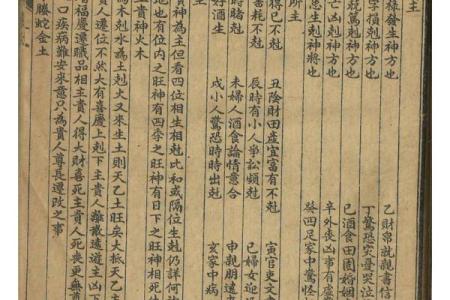 主
祿發生凶神方也 乙財帛就親書信
字損剋神方也 丁驚恐哭憂哭泣
賊驚剋神方也 巳酒食田園婚姻
亡凶剋神將也 辛外喪凶事有虛
忿生剋神將也 癸四足家中驚怪
所主
得巳不剋 丑陰財田產宜富有不剋 寅官吏文書
書耗不剋 辰時有小人爭訟頻剋 巳婦女迎
時賭剋 未婦人酒食論情意合 申親朋遠
好酒生 戌小人驚恐時時出剋 亥家中病
貴神為主但看四位相生相剋比和或隔位生剋仍詳何
地也有位內之旺神有四季之旺神有日下之旺神有相死休
主貴神火木
為木剋水為土剋火又來生土則天乙土旺矣大抵天乙主
貴人遷位不然大有喜慶上剋下主貴人離散遠遊主凶下
增福慶遷職品相主貴人得大財喜死主貴人死喪更無尊
口疾病難安來意只為貴人尊長遷改之事
螣蛇金土